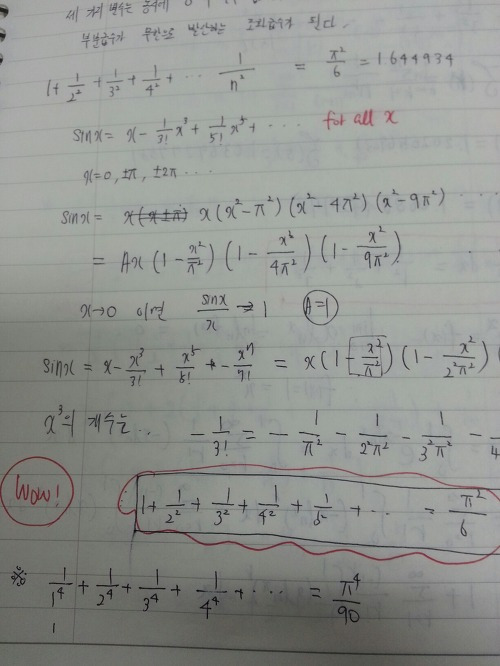 세 가지 변수는
부분급수가 무한으로 발산하는 조화급수가 된다.
1 + 1/2² + 1/3² + 1/4² + ⋯ 1/n² = π²/6 = 1.644934
sinx = x - 1/3! x³ + 1/5! x⁵ + ⋯ for all x
x=0, ±π, ±2π ⋯
sinx = x(x²-π²)(x²-4π²)(x²-9π²) ⋯
= Ax(1 - x²/π²)(1 - x²/4π²)(1 - x²/9π²)
x→0 이면 sinx/x → 1 A=1
sinx = x - x³/3! + x⁵/5! - x⁷/7! = x(1 - x²/π²)(1 - x²/2²π²)
x³의 계수는.. -1/3! = -1/π² - 1/2²π² - 1/3²π² -
Wow!
1 + 1/2² + 1/3² + 1/4² + 1/5² + ⋯ = π²/6
※ 1/1⁴ + 1/2⁴ + 1/3⁴ + 1/4⁴ + ⋯ = π⁴/90